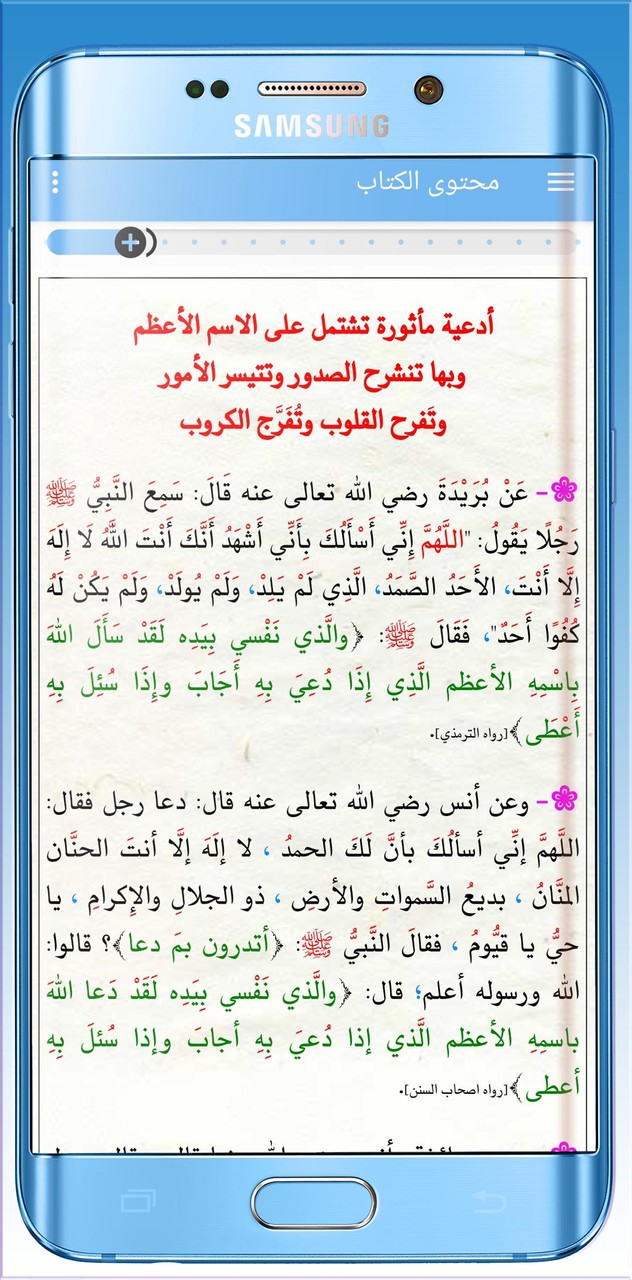 SAMSUNG
محتوى الكتاب
أدعية مأثورة تشتمل على الاسم الأعظم
وبها تنشرح الصدور وتتيسر الأمور
وتَفرح القلوب وتُفَرَّج الكروب
- عَنْ بُرَيْدَةَ رضي الله تعالى عنه قَالَ: سَمِعَ النَّبِيُّ ﷺ
رَجُلًا يَقُولُ: "اللَّهُمَّ إِنِّي أَسْأَلُكَ بِأَنِّي أَشْهَدُ أَنَّكَ أَنْتَ اللَّهُ لَا إِلَهَ
إِلَّا أَنْتَ، الأَحَدُ الصَّمَدُ، الَّذِي لَمْ يَلِدْ، وَلَمْ يُولَدْ، وَلَمْ يَكُنْ لَهُ
كُفُوًا أَحَدٌ"، فَقَالَ ﷺ: ﴿والَّذي نَفْسي بِيَدِه لَقَدْ سَأَلَ اللهَ
بِاسْمِهِ الأعظم الَّذِي إِذَا دُعِيَ بِهِ أَجَابَ وإِذَا سُئِلَ بِهِ
أَعْطَى﴾[رواه الترمذي].
- وعن أنس رضي الله تعالى عنه قال: دعا رجل فقال:
اللَّهمَّ إنِّي أسألُكَ بأنَّ لَكَ الحمدُ ، لا إلَهَ إلَّا أنتَ الحنَّان
المنَّانُ ، بديعُ السَّمواتِ والأرضِ ، ذو الجلالِ والإكرامِ ، يا
حيُّ يا قيُّومُ ، فقالَ النَّبيُّ ﷺ: ﴿أتدرون بمَ دعا﴾؟ قالوا:
الله ورسوله أعلم؛ قال: ﴿والَّذي نَفْسي بِيَدِه لَقَدْ دَعا اللهَ
باسمِهِ الأعظم الَّذي إذا دُعيَ بِهِ أجابَ وإذا سُئلَ بِهِ
أعطى﴾[رواه اصحاب السنن].